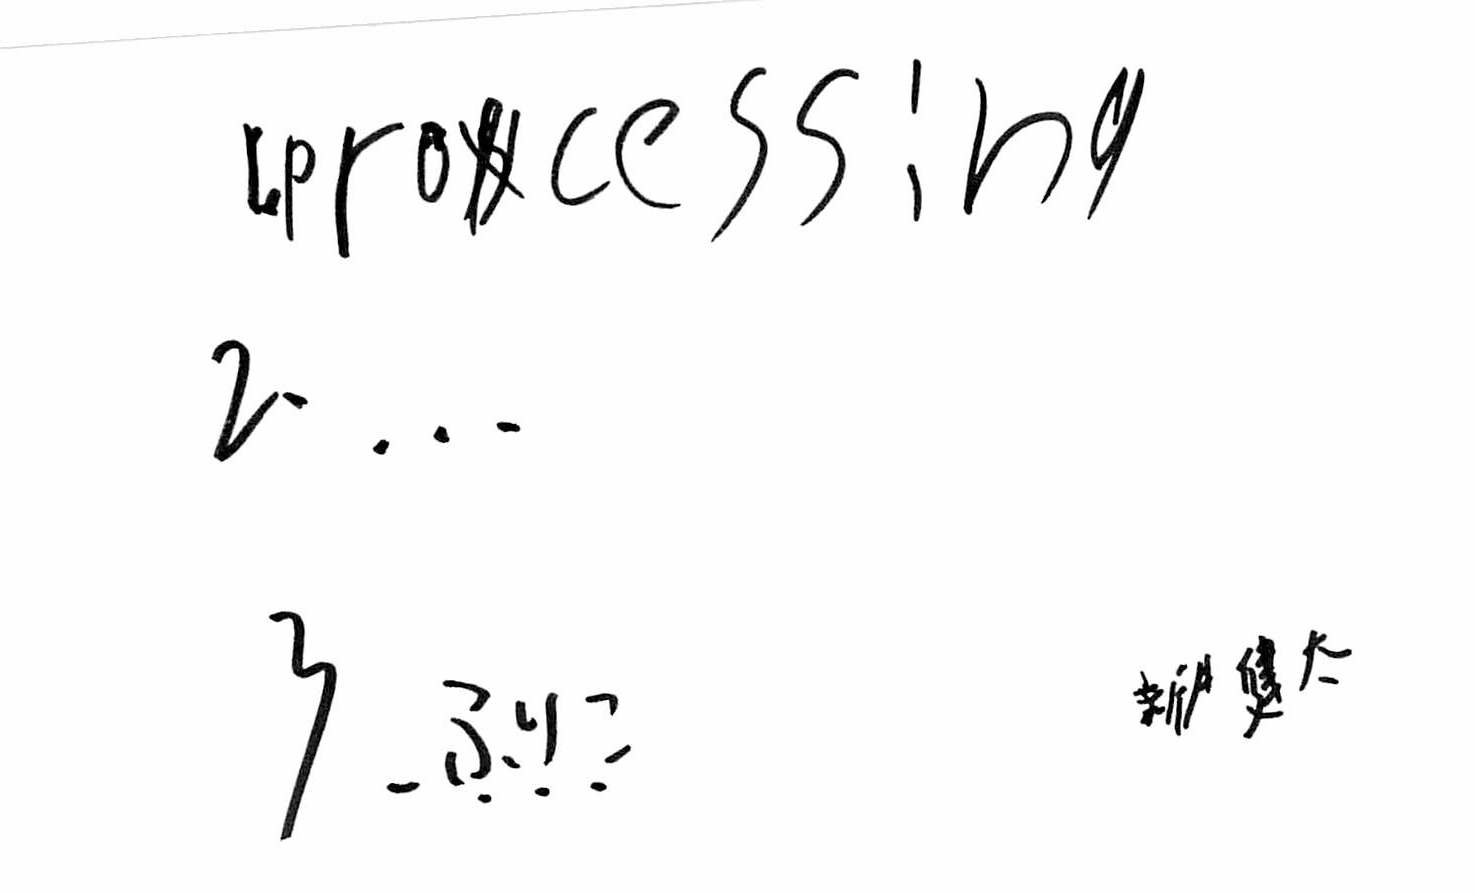 processing
2. ...
3 ...ふりこ...
新 健太